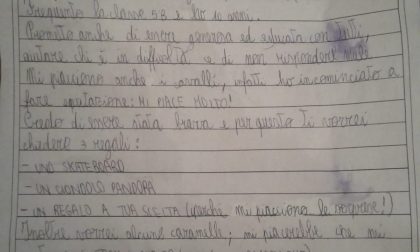 Frequento la classe 5B e ho 10 anni..
Prometto anche di essere generosa ed educata con tutti,
aiutare chi è in difficoltà e di non rispondere male.
Mi piacciono anche i cavalli, infatti ho incominciato a
fare equitazione: MI PIACE MOLTO!
Credo di essere stata brava e per questo ti vorrei
chiedere 3 regali:
- UNO SKATEBOARD
- UN CIONDOLO PANDORA
- UN REGALO A TUA SCELTA (perché mi piacciono le sorprese!)
Inoltre vorrei alcune caramelle; mi piacerebbe che mi